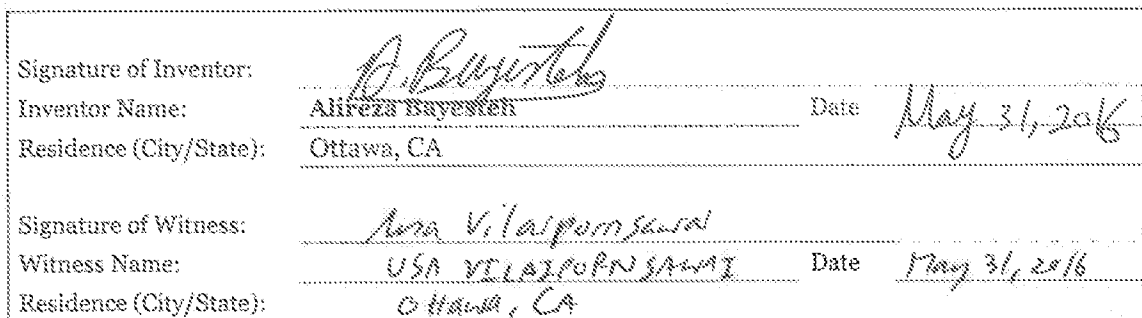 Signature of Inventor: A. Bayesteh
Inventor Name: Alireza Bayesteh Date May 31, 2016
Residence (City/State): Ottawa, CA
Signature of Witness: Usa Vilaipornsawai
Witness Name: USA VILAIPORNSAWAI Date May 31, 2016
Residence (City/State): Ottawa, CA